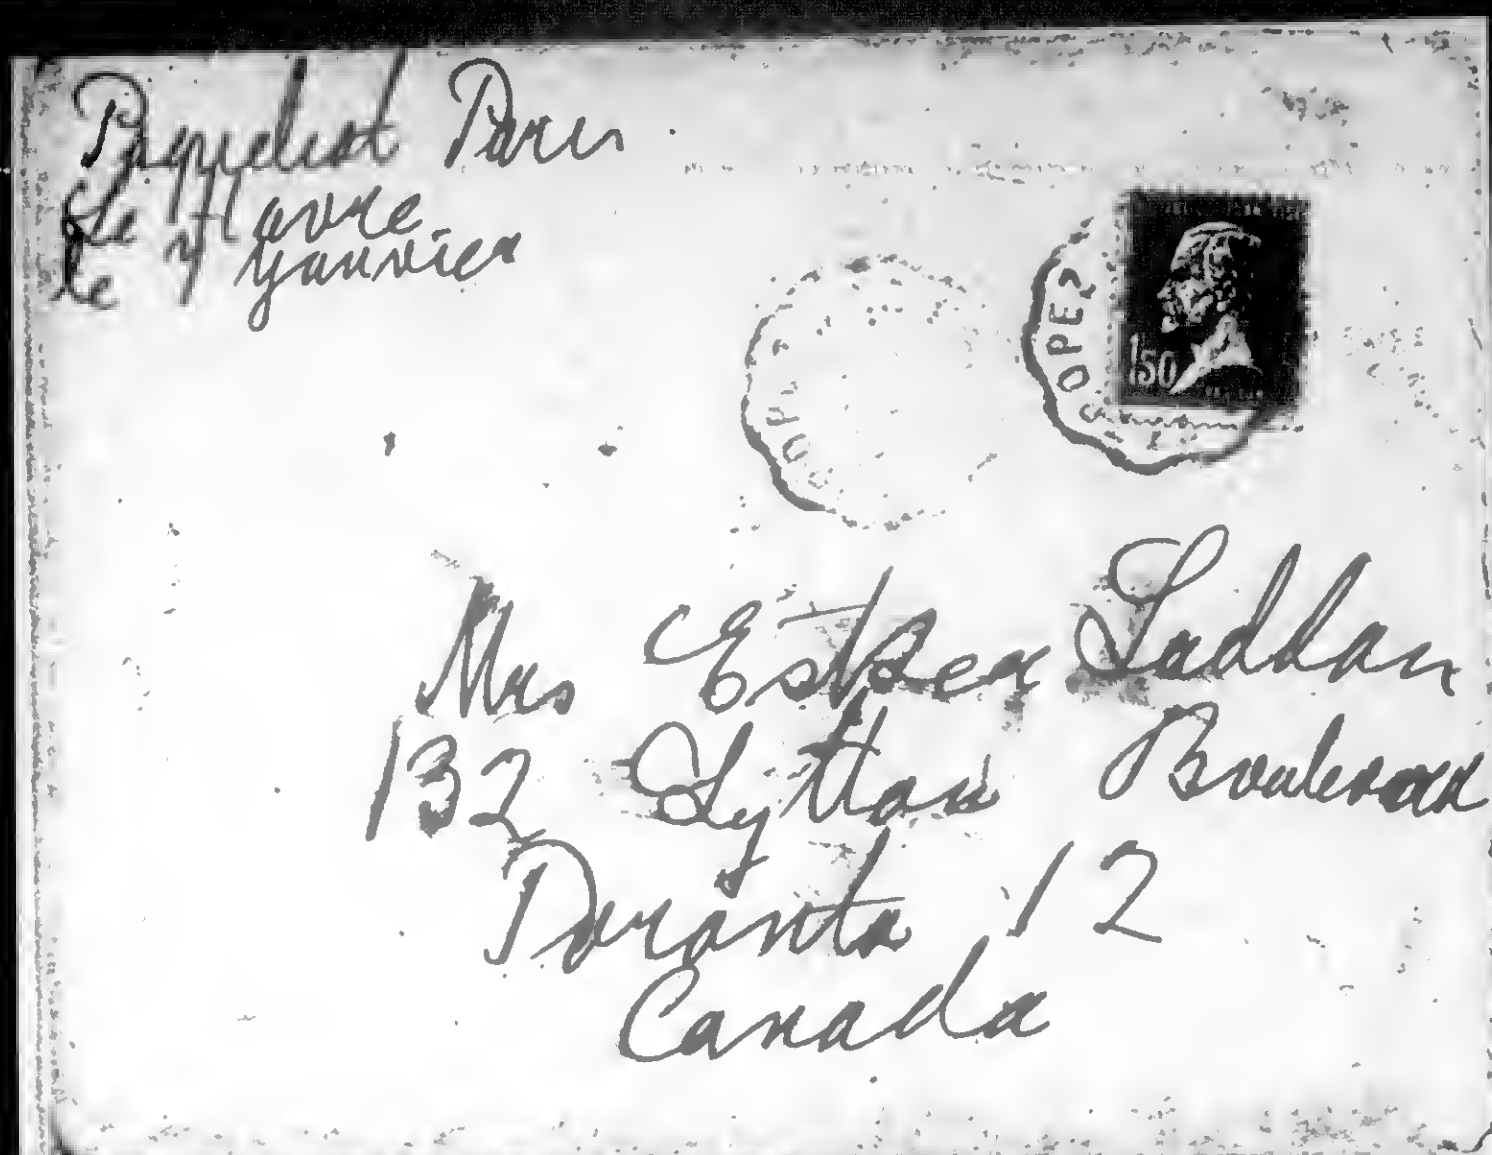 Paquebot Paris
Le Havre
le 7 Janvier
OPÉ2
1f50
Mrs Esther Laddan
132 Lytton Boulevard
Toronto 12
Canada